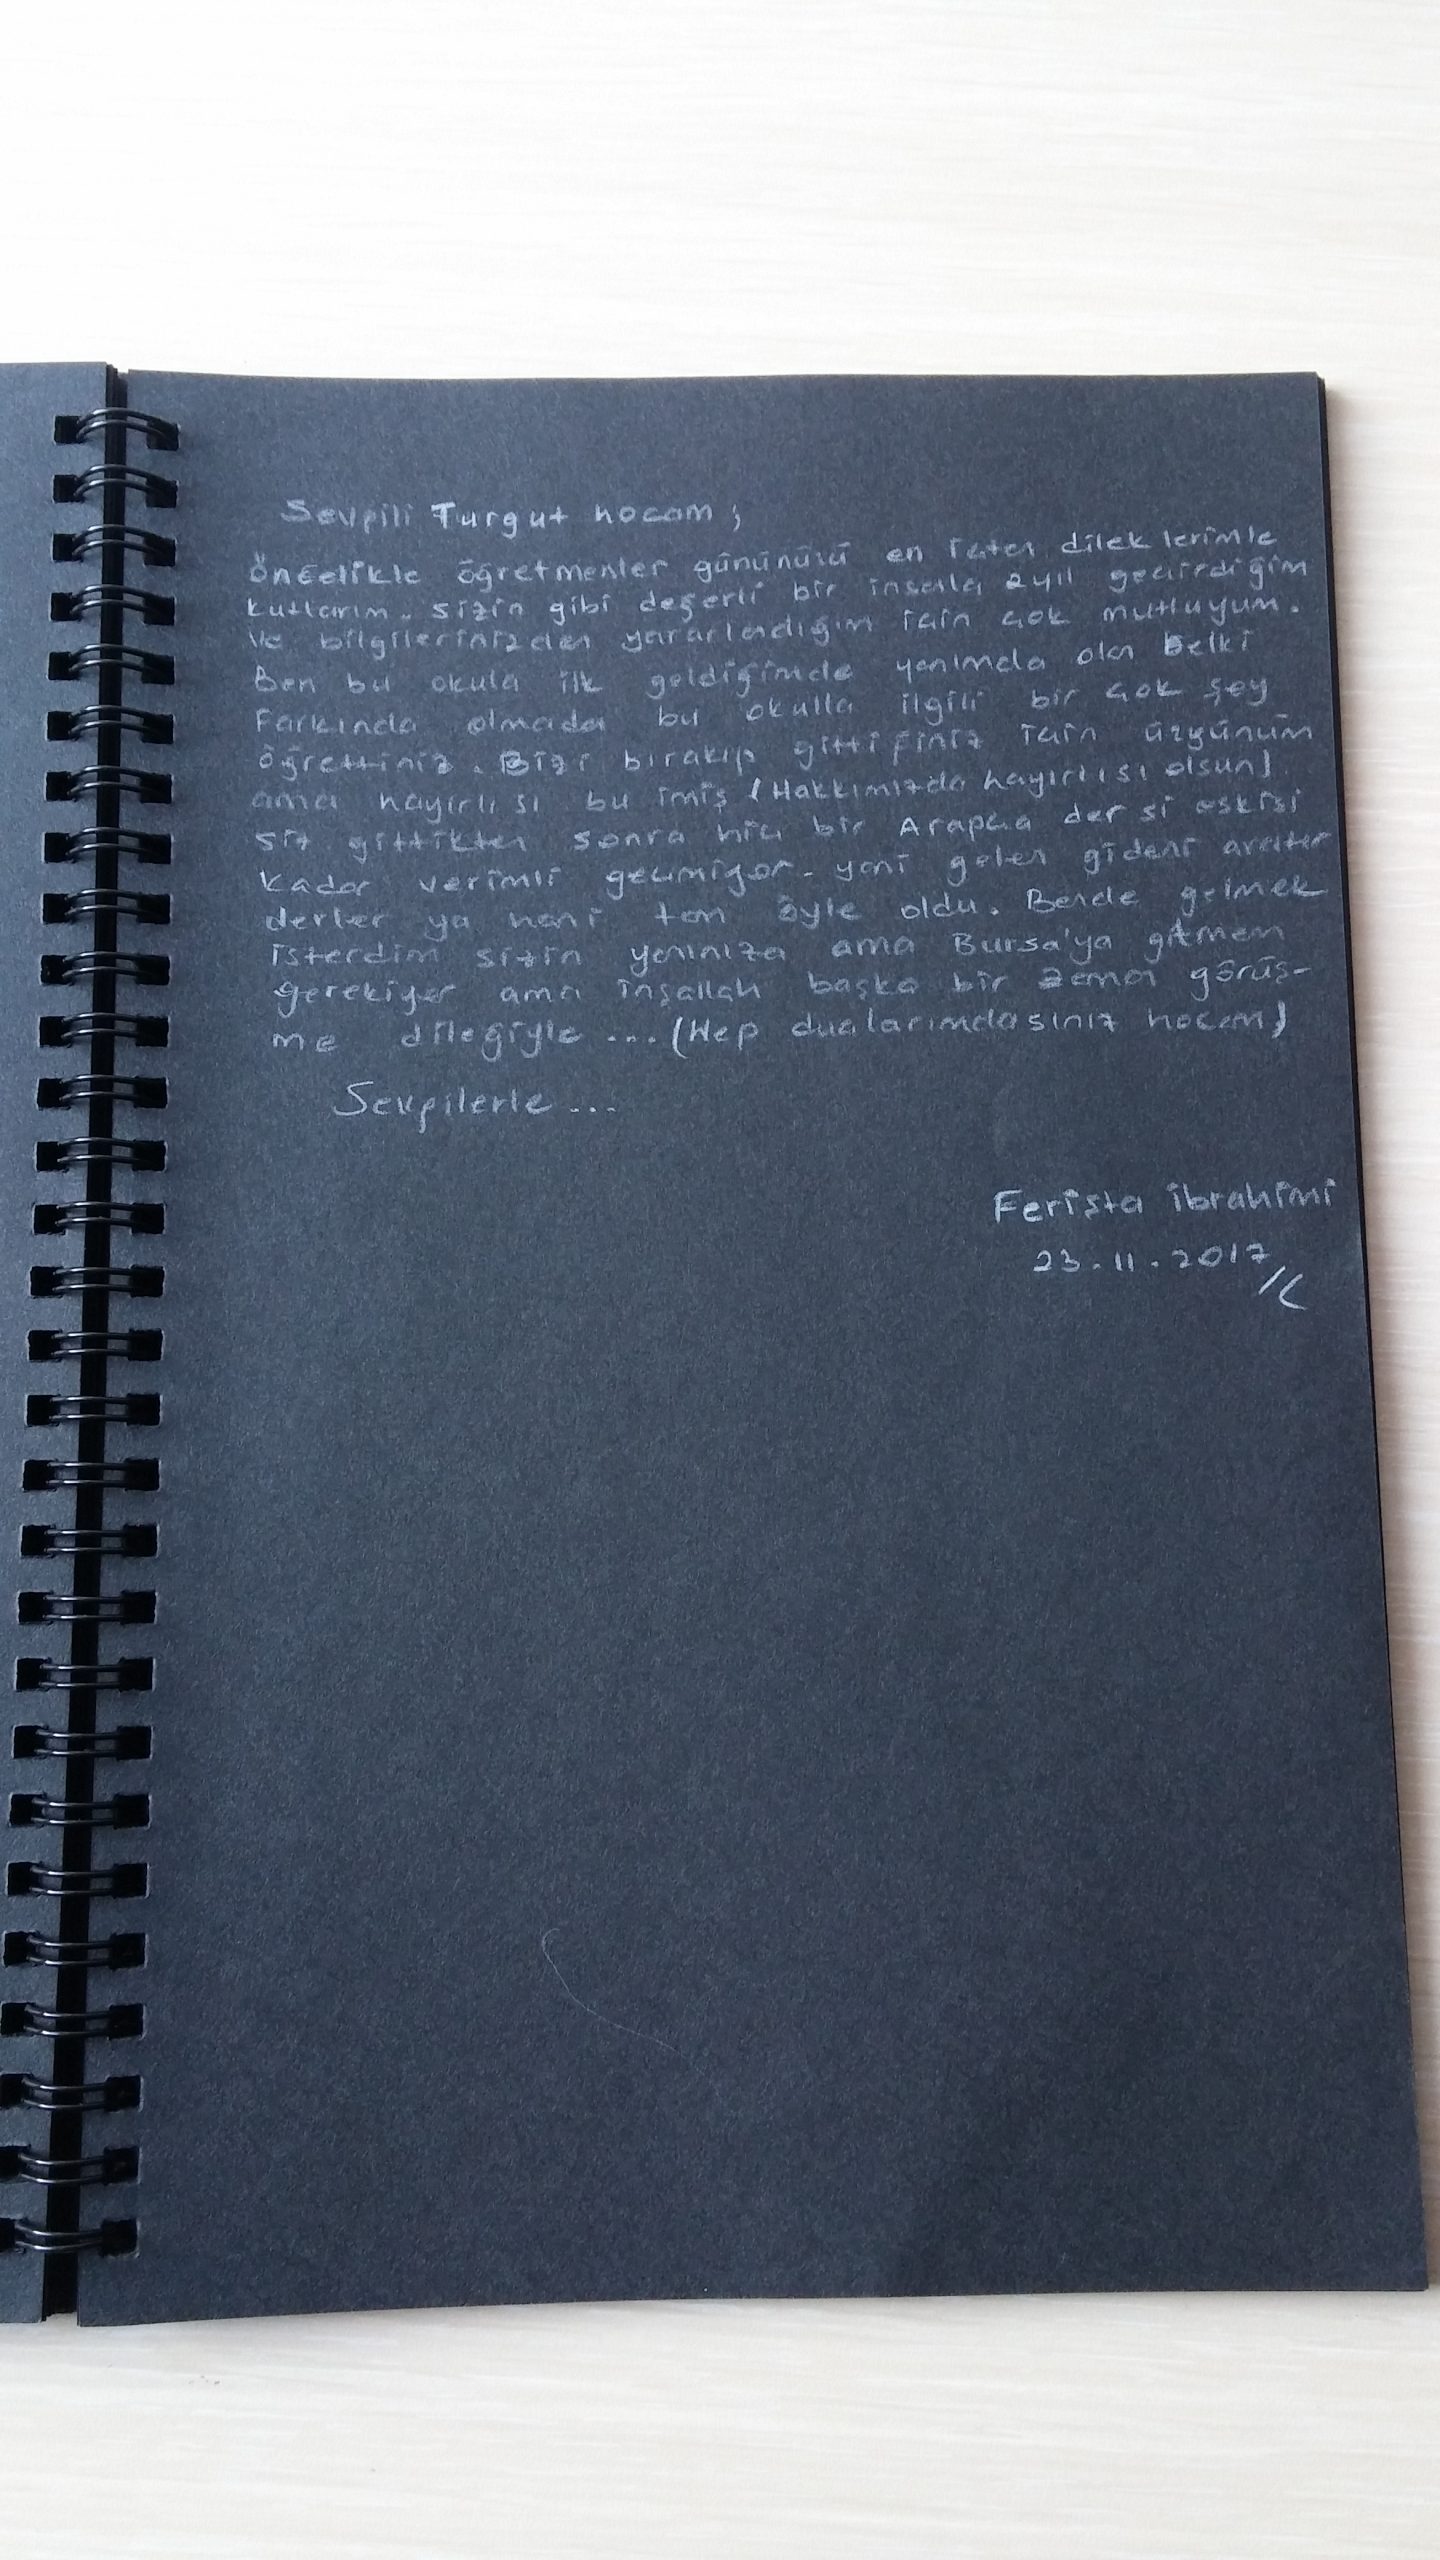 Sevgili Turgut hocam;
Öncelikle öğretmenler gününüzü en içten dileklerimle
kutlarım. Sizin gibi değerli bir insanla 2 yıl geçirdiğim
Ve bilgilerinizden yararlandığım için çok mutluyum.
Ben bu okula ilk geldiğimde yanımda olan Belki
Farkında olmadan bu okulla ilgili bir çok şey
öğrettiniz. Bizi bırakıp gittiğiniz için üzgünüm
ama hayırlısı bu imiş (Hakkımızda hayırlısı olsun)
siz gittikten sonra hiç bir Arapça dersi eskisi
kadar verimli geçmiyor. yeni gelen gideni aratır
derler ya hani tam öyle oldu. Bende gelmek
isterdim sizin yanınıza ama Bursa'ya gitmem
gerekiyor ama inşallah başka bir zaman görüş-
me dileğiyle ... (Hep dualarımdasınız hocam)
Sevgilerle ...
Ferişta ibrahimi
23.11.2017